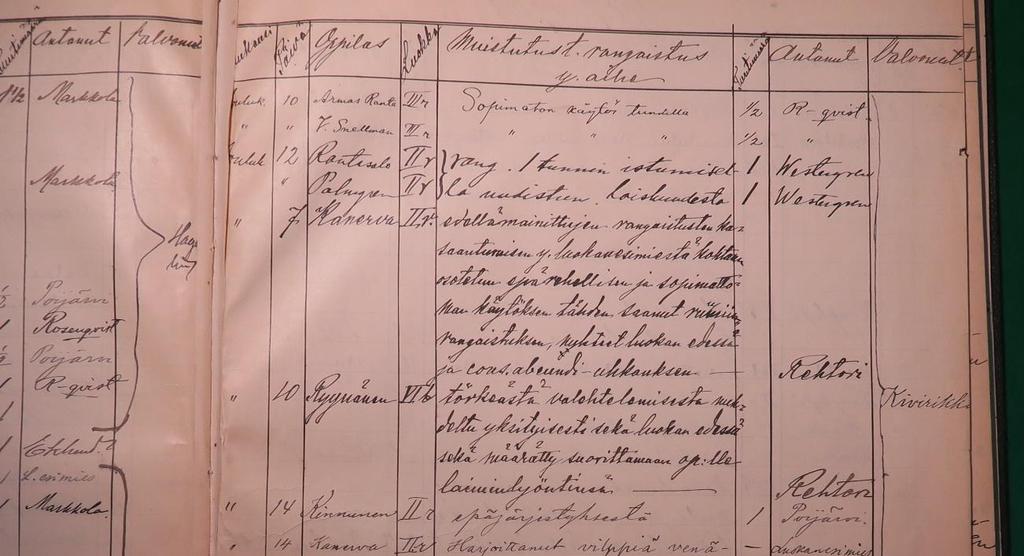 Antanut Valvonut
1½ Markkola
Markkola
Poijärvi
Rosenqvist
Poijärvi
R-qvist
Eklund
L. esimies
Markkola.
Päivä Oppilas Luokka Muistutus t. rangaistus y. aihe Antanut Valvonut
10 Armas Ranta III r Sopimaton käytös tunnilla ½ R-qvist.
" " V. Snellman III r " " " ½ "
12 Rantasalo II r rang. 1 tunnin istumisel- 1 Westergren
" Palmgren II r la uudistun. loiskundesta 1 Westergren
" 7 Kanerva II r. edellämainittujen rangaistusten ka-
saantumisen y. luokanesimiestä kohtaan
osotetun epärehellisen ja sopimatto-
man käytöksen tähden saanut
rangaistuksen, nyhteet luokan edessä
ja cons. abeundi-uhkauksen — Rehtori
" 10 Ryynänen VI b törkeästä valehtelemisesta nuh-
deltu yksityisesti sekä luokan edessä Kivirikko
sekä määrätty suorittamaan op:lle
laiminlyöntinsä — Rehtori
" 14 Kinnunen II r epäjärjestyksestä 1 Poijärvi.
" 14 Kanerva II r Harjoittanut vilppiä venä- —